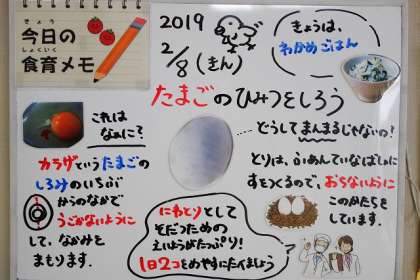 きょう
今日の
しょくいく
食育メモ
2019
2/8(きん)
きょうは、
わかめごはん
たまごのひみつをしろう
これは
なぁに?
カラザというたまごの
しろみのいちぶ
からのなかで
うごかないように
して、なかみを
まもります。
どうしてまんまるじゃないの?
とりは、ふあんていなばしょに
すをつくるので、おちないように
このかたちを
しています。
にわとりとして
そだつための
えいようがたっぷり!
1日2つをめやすにたべましょう